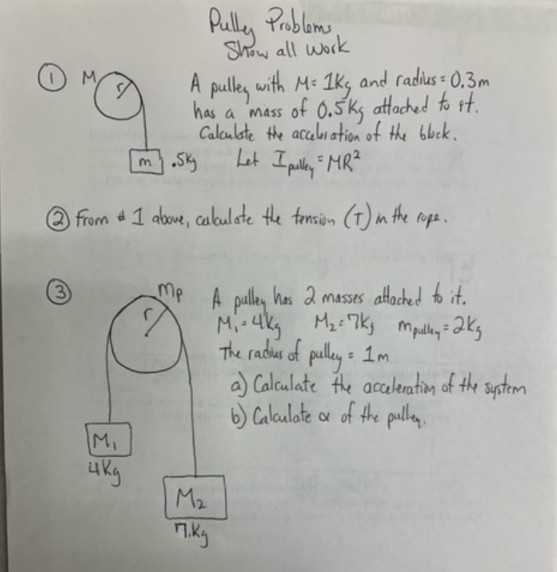 Pulley Problems
Show all work
① M r A pulley with M= 1Kg and radius = 0.3m
has a mass of 0.5Kg attached to it.
Calculate the acceleration of the block.
m .5Kg Let I pulley = MR²
② From # 1 above, calculate the tension (T) in the rope.
③ mp A pulley has 2 masses attached to it.
r M₁ = 4Kg M₂ = 7Kg m pulley = 2Kg
The radius of pulley = 1m
a) Calculate the acceleration of the system
b) Calculate α of the pulley.
M₁
4Kg
M₂
7.Kg